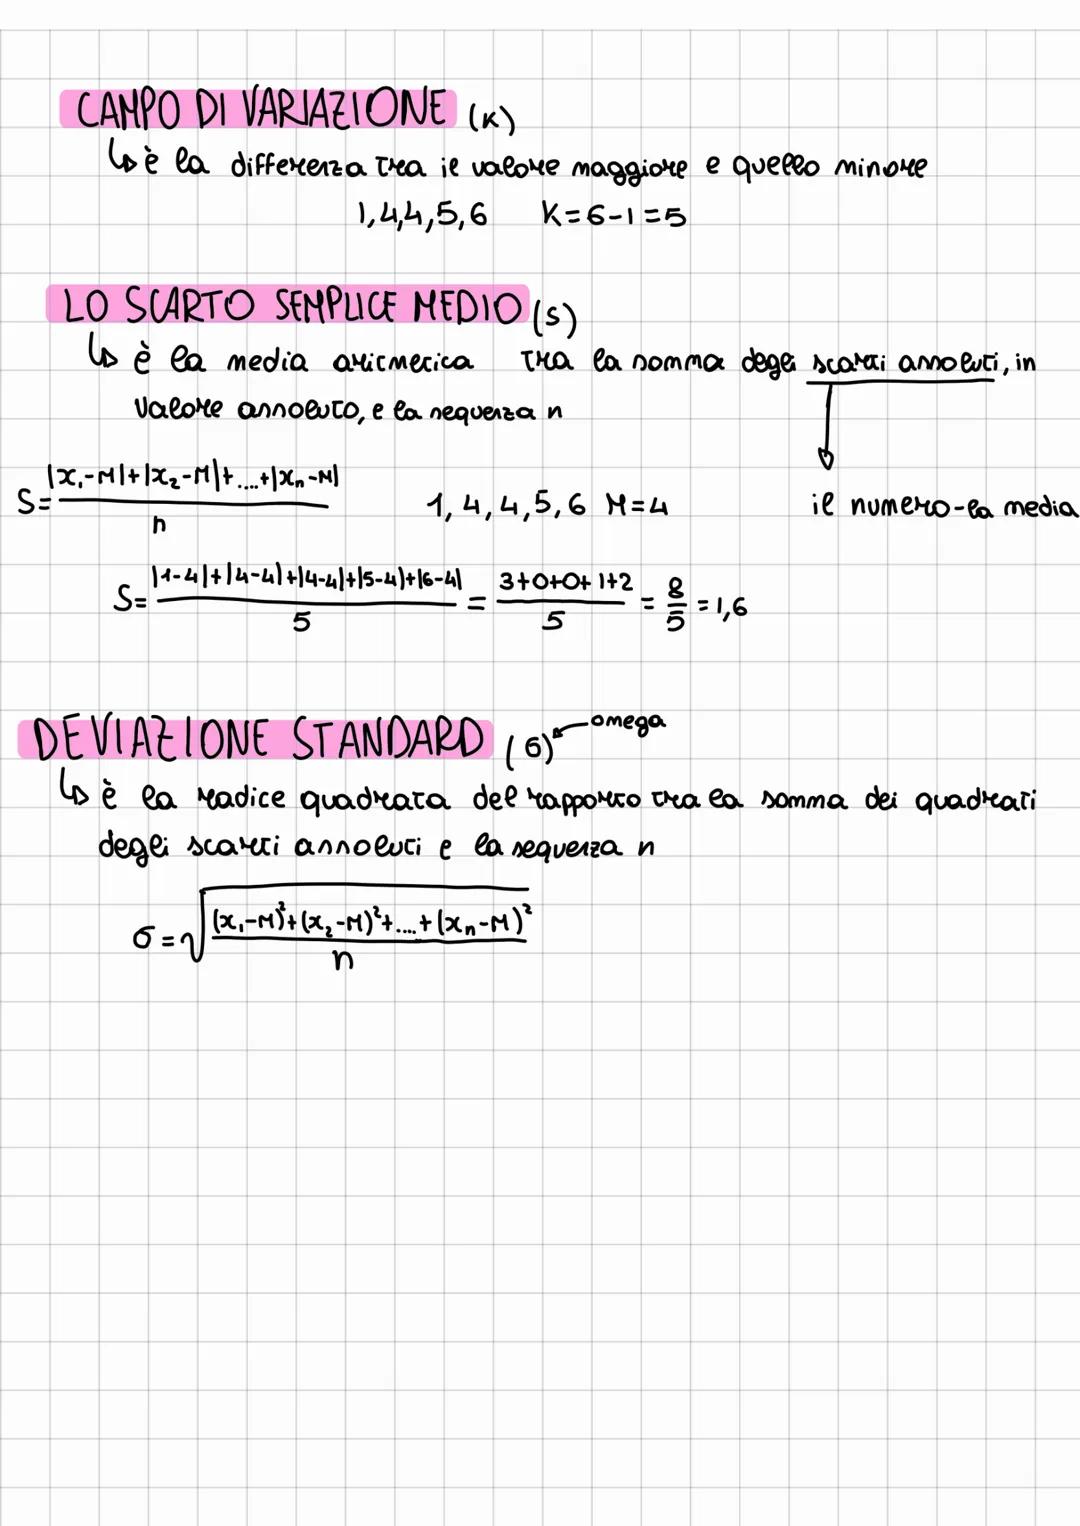 CAMPO DI VARIAZIONE (K)
↳ è la differenza tra il valore maggiore e quello minore
1,4,4,5,6 K=6-1=5
LO SCARTO SEMPLICE MEDIO (S)
↳ è la media aritmetica tra la somma degli scarti assoluti, in
valore assoluto, e la sequenza n
S= |x₁-M|+|x₂-M|+....+|xₙ-M| / n
1, 4, 4, 5, 6 M=4
il numero-la media
S= |1-4|+|4-4|+|4-4|+|5-4|+|6-4| / 5 = 3+0+0+1+2 / 5 = 8/5 = 1,6
DEVIAZIONE STANDARD (σ) omega
↳ è la radice quadrata del rapporto tra la somma dei quadrati
degli scarti assoluti e la sequenza n
σ = √ (x₁-M)²+(x₂-M)²+....+(xₙ-M)² / n